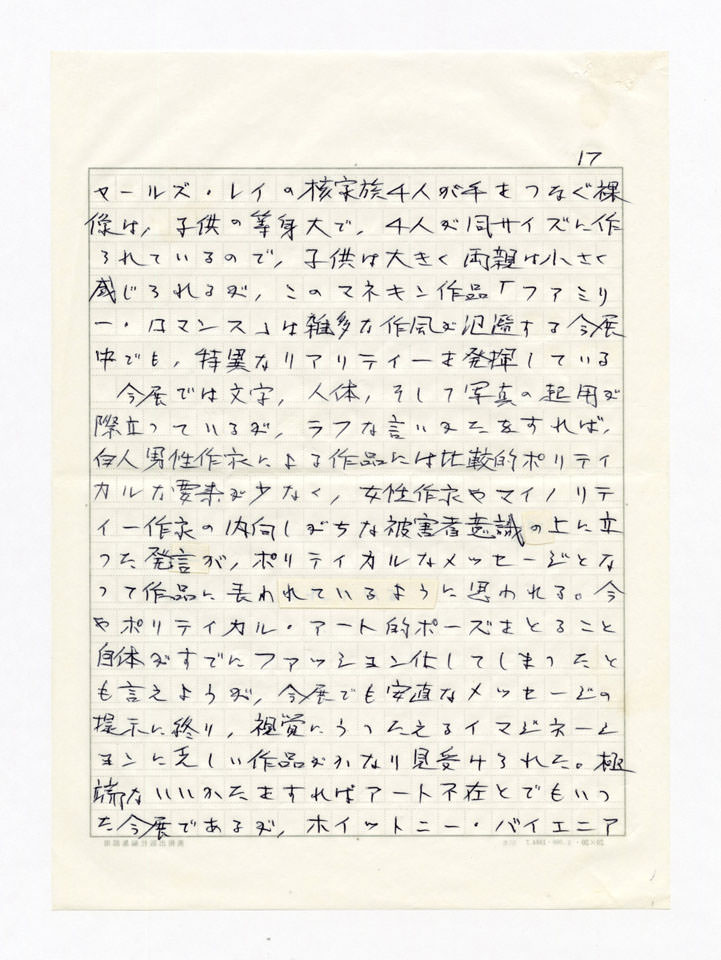 17
ャールズ・レイの核家族4人が手をつなぐ裸
像は、子供の等身大で、4人が同サイズに作
られているので、子供は大きく両親は小さく
感じられるが、このマネキン作品「ファミリ
ー・ロマンス」は雑多な作風が氾濫する今展
中でも、特異なリアリティーを発揮している
今展では文字、人体、そして写真の起用が
際立っているが、ラフな言いかたをすれば、
白人男性作家による作品には比較的ポリティ
カルな要素が少なく、女性作家やマイノリテ
ィー作家の内向しがちな被害者意識の上に立
った発言が、ポリティカルなメッセージとな
って作品に表われているように思われる。今
やポリティカル・アート的ポーズをとること
自体がすでにファッション化してしまったと
も言えようが、今展でも安直なメッセージの
提示に終り、視覚にうったえるイマジネーシ
ョンに乏しい作品がかなり見受けられた。極
端ないいかたをすればアート不在とでもいっ
た今展であるが、ホイットニー・バイエニア